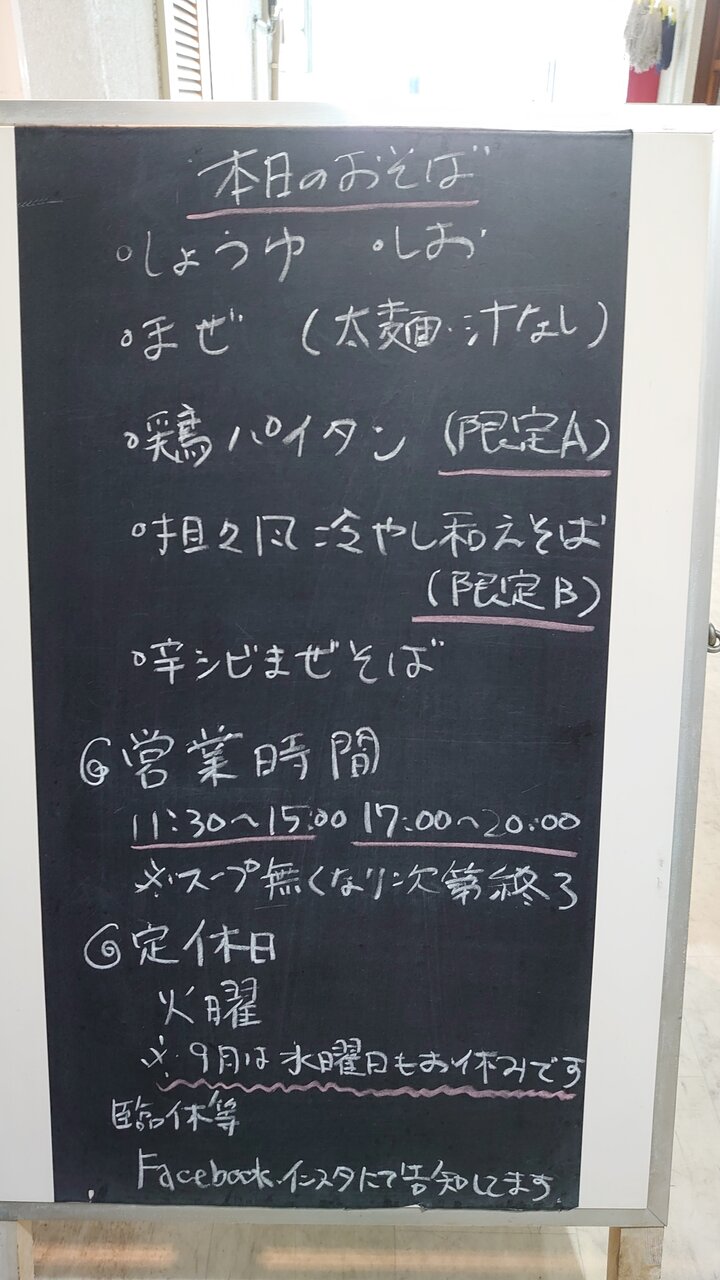 本日のおそば
°しょうゆ °しお
°まぜ (太麺・汁なし)
°鶏パイタン (限定A)
°担々风冷やし和えそば
(限定B)
°辛シビまぜそば
◎営業時間
11:30〜15:00 17:00〜20:00
※スープ無くなり次第終了
◎定休日
火曜
※9月は水曜日もお休みです
臨休等
Facebook.インスタにて告知してます.